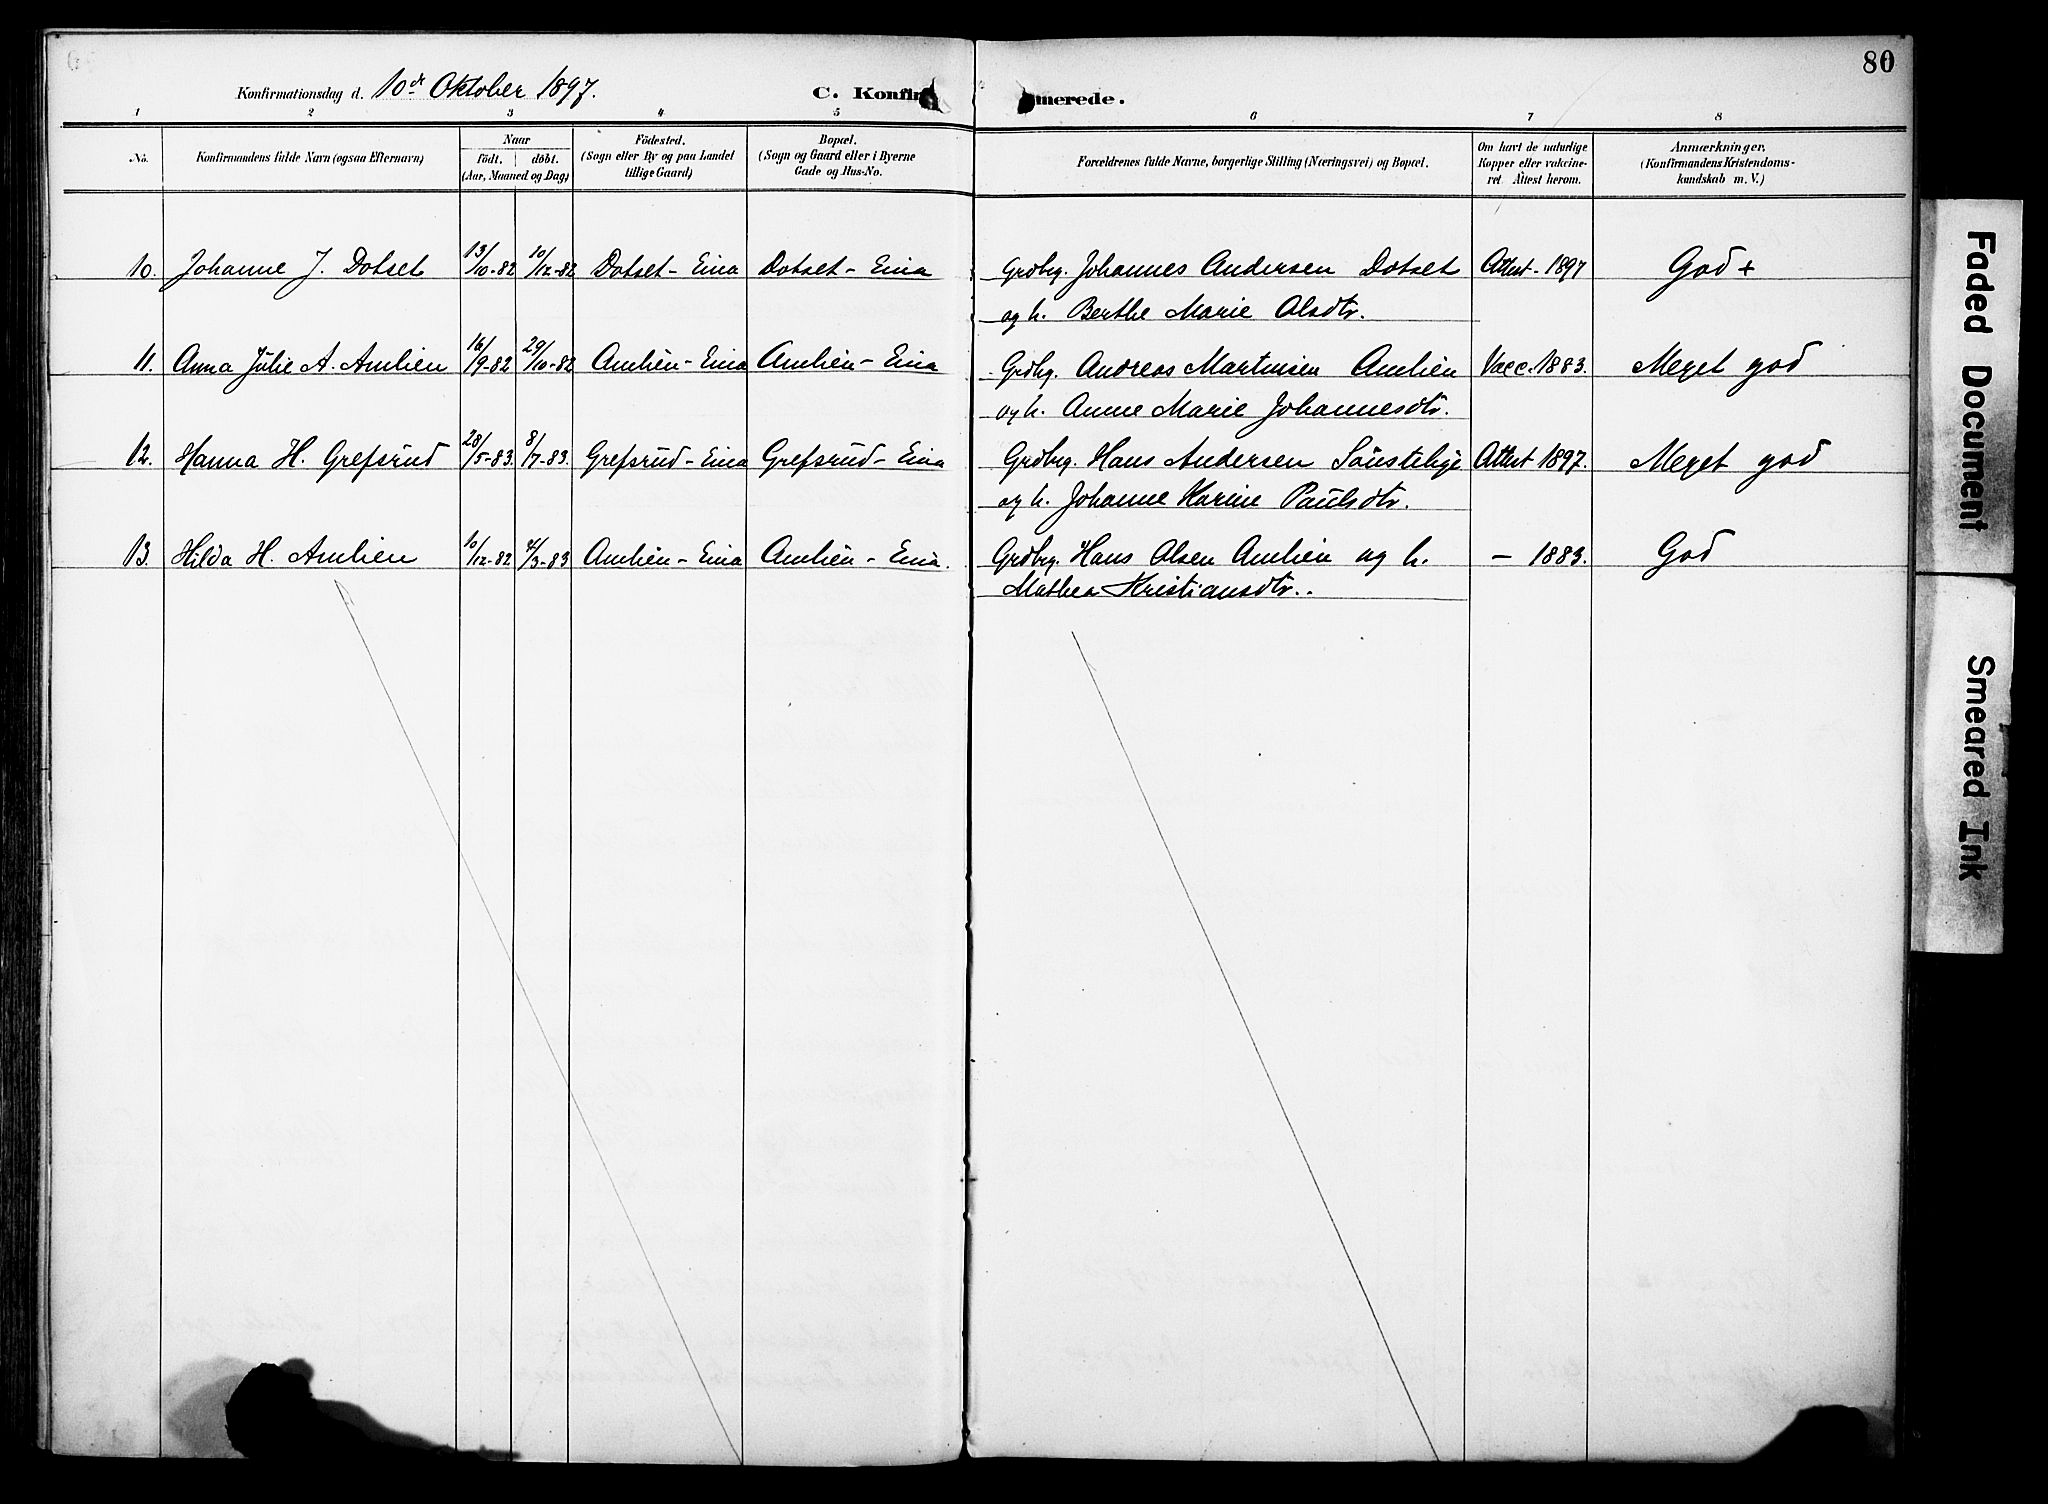 80
Konfirmationsdag d. 10de Oktober 1897.
C. Konfirmerede.
1 2 3 4 5 6 7 8
No.
Konfirmandens fulde Navn (ogsaa Efternavn)
Naar
födt. döbt.
(Aar, Maaned og Dag)
Födested.
(Sogn eller By og paa Landet
tillige Gaard)
Bopæl.
(Sogn og Gaard eller i Byerne
Gade og Hus-No.
Forældrenes fulde Navne, borgerlige Stilling (Næringsvei) og Bopæl.
Om havt de naturlige
Kopper eller vaccine-
ret Attest herom.
Anmærkninger,
(Konfirmandens Kristendoms-
kundskab m. V.)
10. Johanne J. Dotset 13/10-82 10/12-82 Dotset - Eina Dotset - Eina Grdbrg. Johannes Andersen Dotset Attest - 1897 God +
og h. Berthe Marie Olsdtr.
11. Anna Julie A. Amlien 16/9-82 29/10-82 Amlien - Eina Amlien - Eina Grdbrg. Andreas Martinsen Amlien Vacc. 1883. Meget god
og h. Anne Marie Johannesdtr.
12. Hanna H. Grefsrud 28/5-83. 8/7-83. Grefsrud - Eina Grefsrud - Eina Grdbrg. Hans Andersen Sönstelige Attest 1897. Meget god
og h. Johanne Karine Paulsdtr.
13. Hilda H. Amlien 10/12-82 4/3-83 Amlien - Eina Amlien - Eina. Grdbrg. Hans Olsen Amlien og h. - 1883. God
Mathea Kristiansdtr.
Faded Document
Smeared Ink